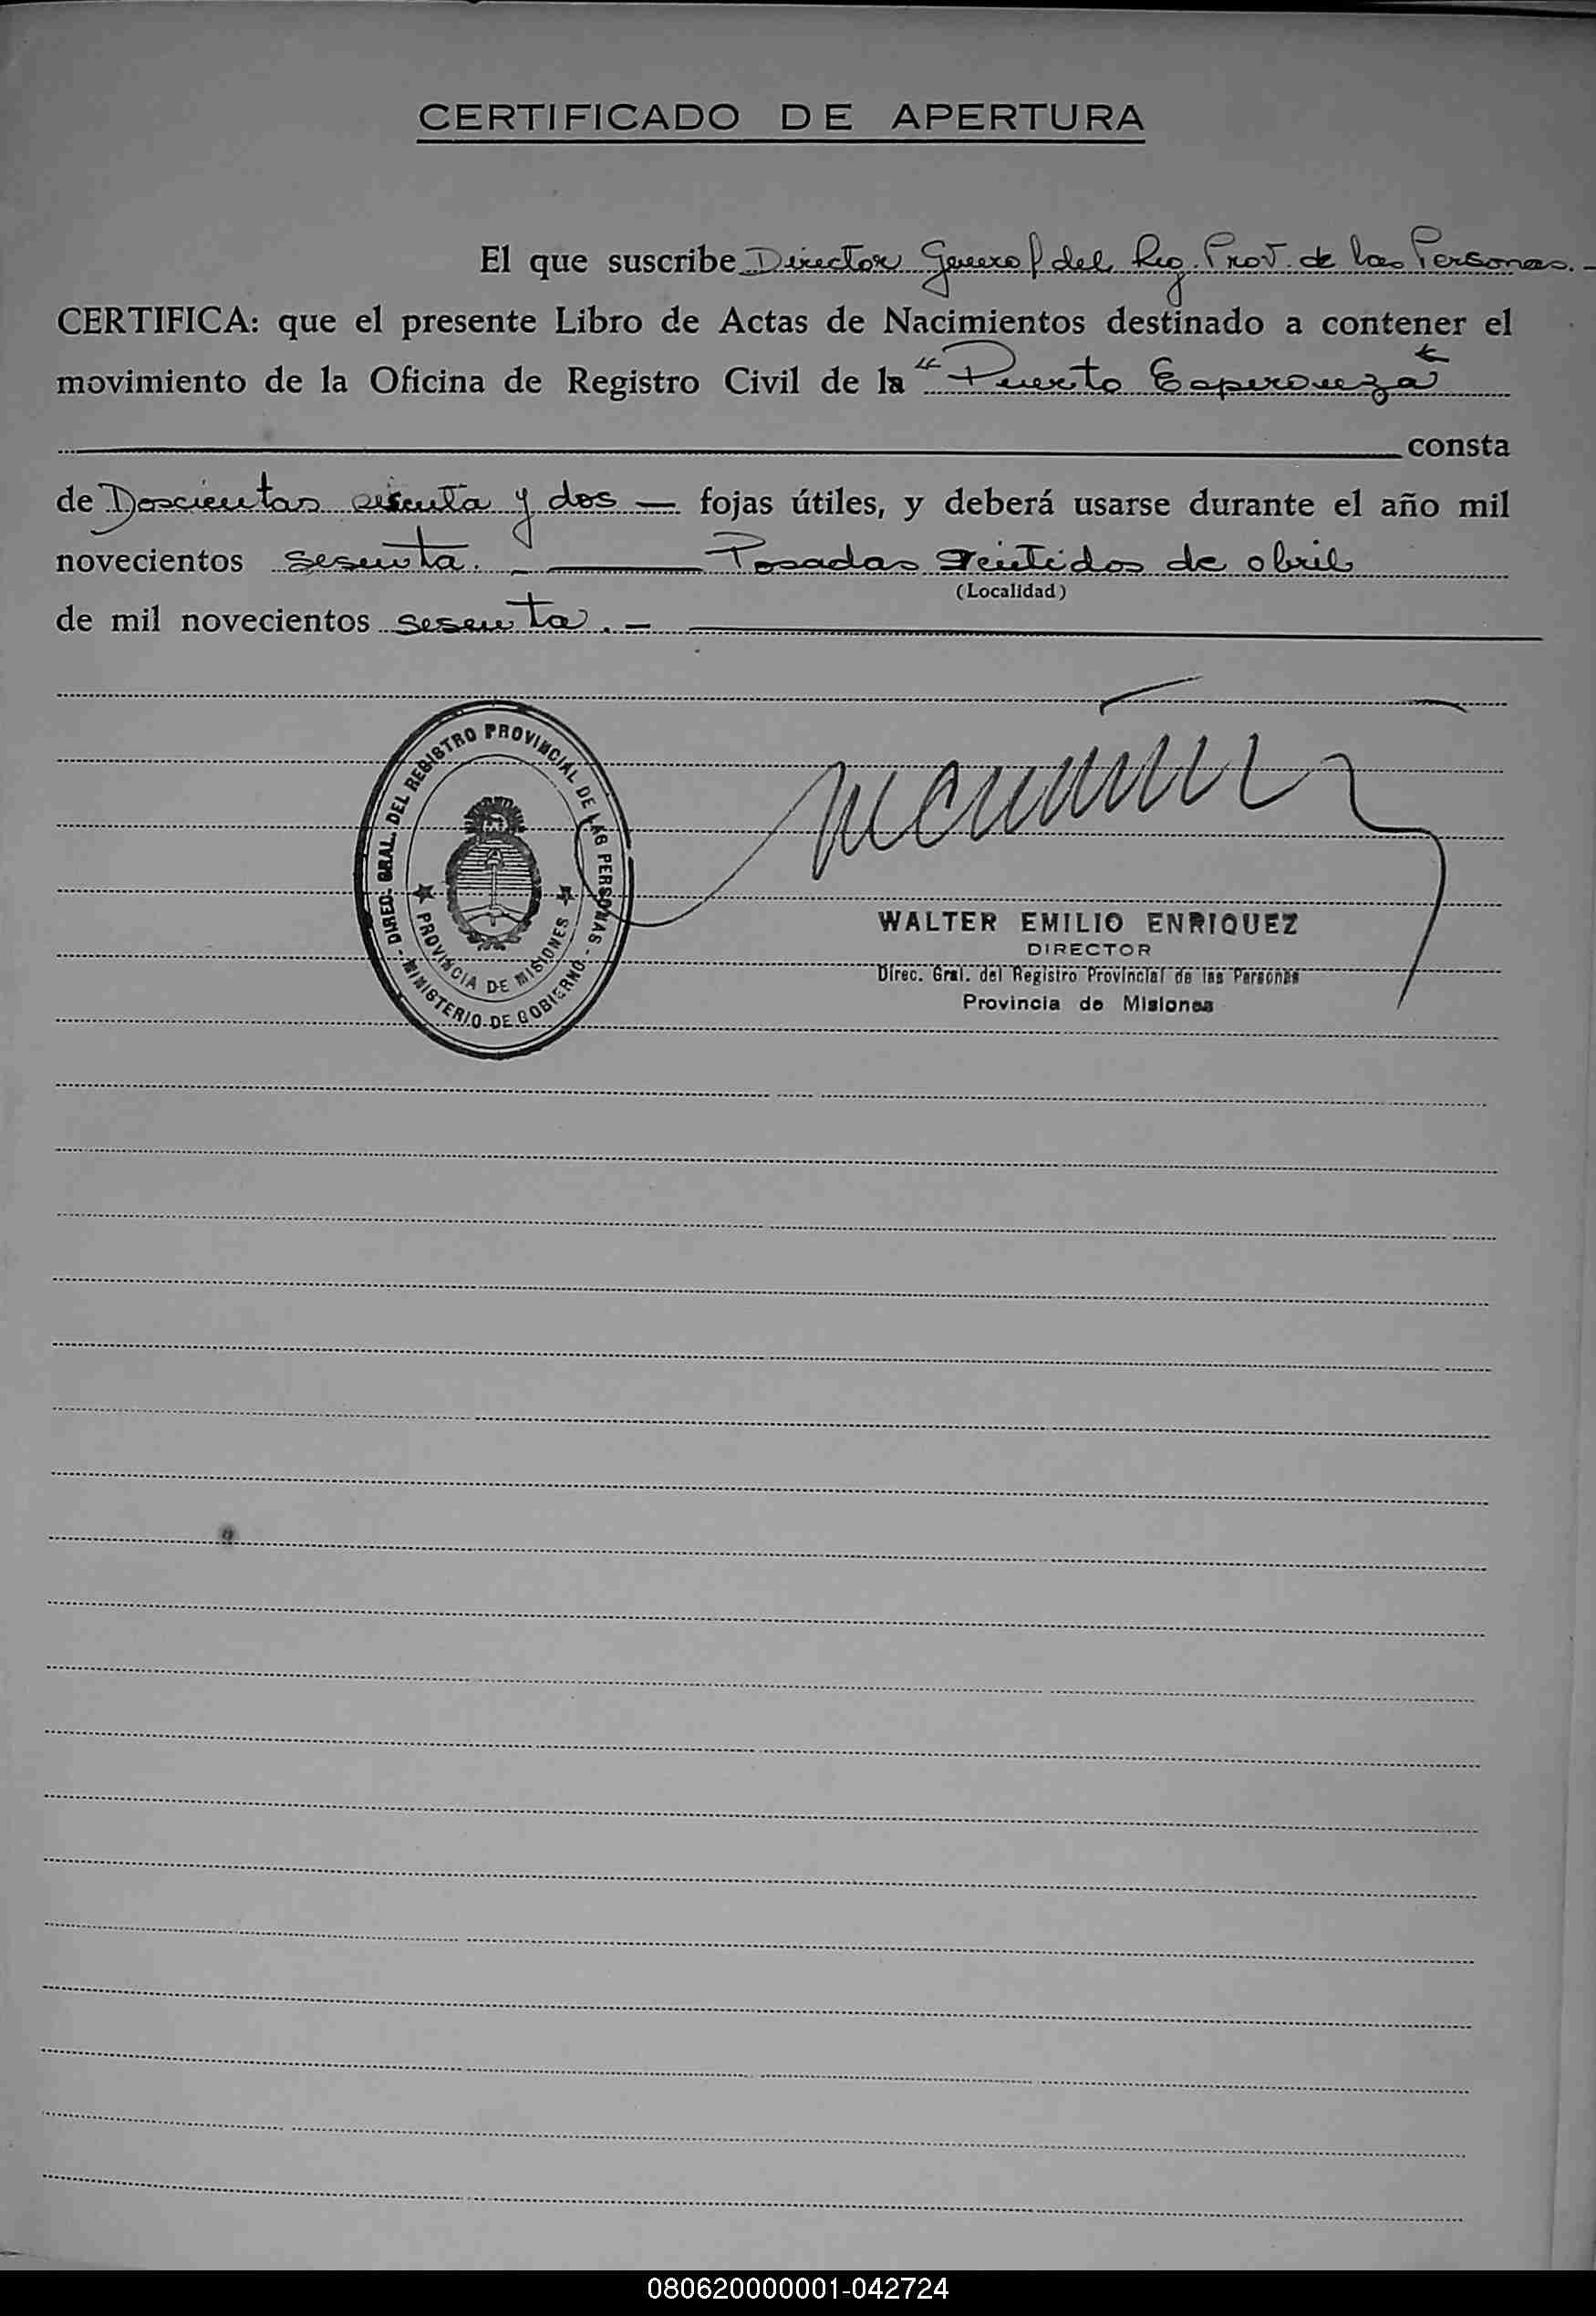 CERTIFICADO DE APERTURA
El que suscribe Director General del Reg. Prov. de las Personas. -
CERTIFICA: que el presente Libro de Actas de Nacimientos destinado a contener el
movimiento de la Oficina de Registro Civil de la "Puerto Esperanza"
consta
de Doscientas y dos — fojas útiles, y deberá usarse durante el año mil
novecientos sesenta. - Posadas veintidos de abril
(Localidad)
de mil novecientos sesenta. -
DIREC. GRAL. DEL REGISTRO PROVINCIAL DE LAS PERSONAS - MINISTERIO DE GOBIERNO -
PROVINCIA DE MISIONES
WALTER EMILIO ENRIQUEZ
DIRECTOR
Direc. Gral. del Registro Provincial de las Personas
Provincia de Misiones
080620000001-042724